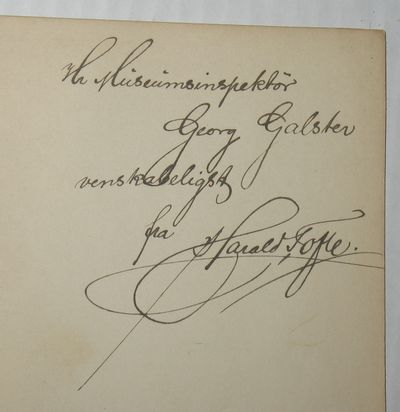 Hr Museumsinspektör
Georg Galster
venskabeligst
fra
Harald Tofte.